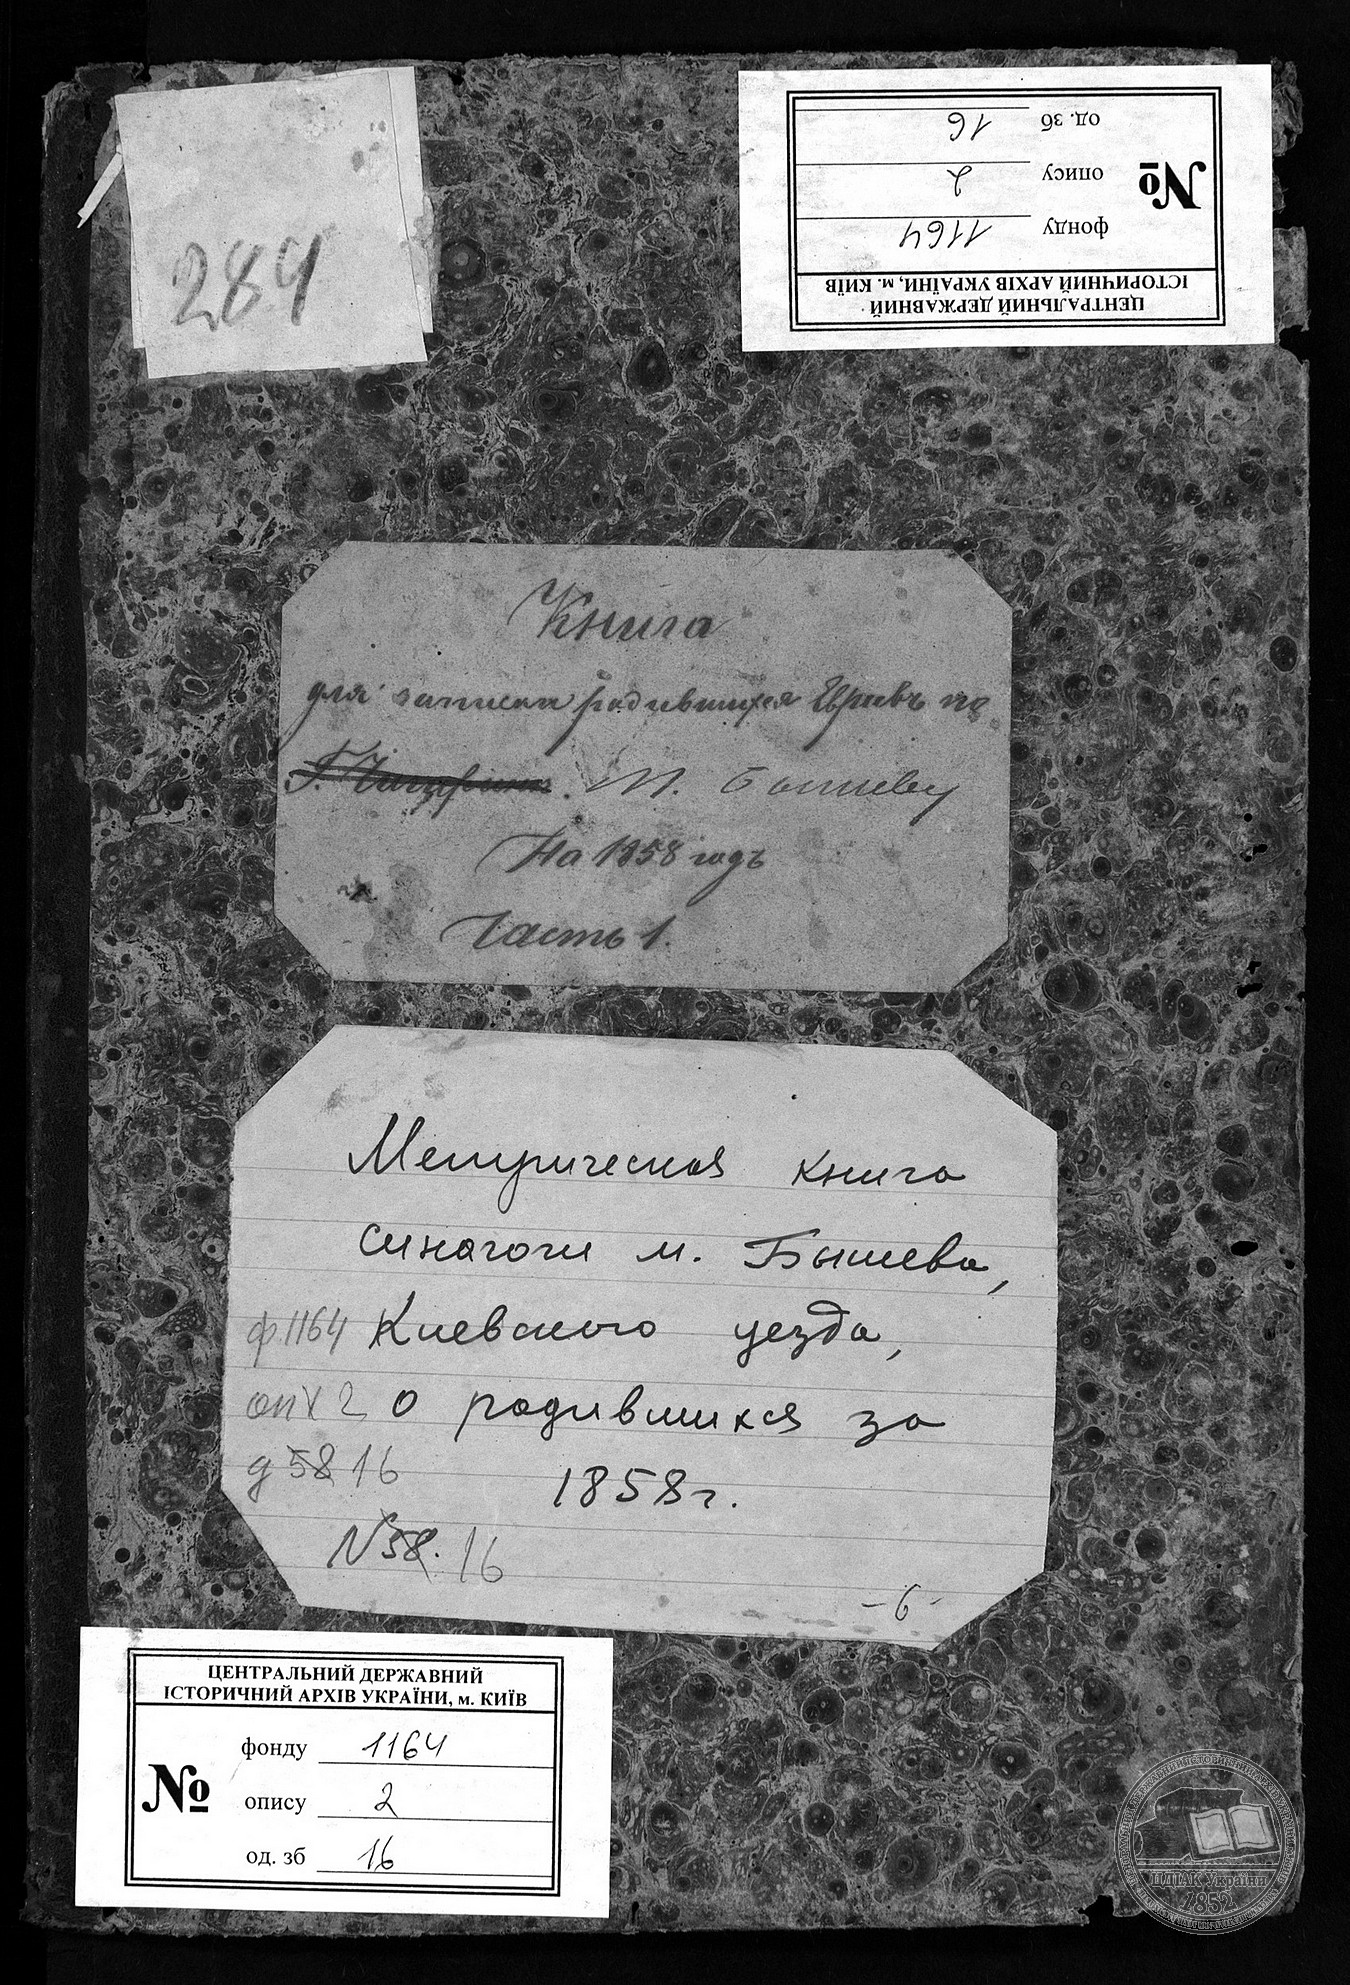 284
ЦЕНТРАЛЬНИЙ ДЕРЖАВНИЙ
ІСТОРИЧНИЙ АРХІВ УКРАЇНИ, м. КИЇВ
№
фонду 1164
опису 2
од. зб 16
Книга
для записки родившихся Евреевъ по
М. Бышеву
На 1858 годъ
Часть 1.
Метрическая книга
синагоги м. Бышева,
ф.1164 Киевского уезда,
оп 2 о родившихся за
д 58 16 1858 г.
N 58. 16
- 6 -
ЦЕНТРАЛЬНИЙ ДЕРЖАВНИЙ
ІСТОРИЧНИЙ АРХІВ УКРАЇНИ, м. КИЇВ
№
фонду 1164
опису 2
од. зб 16
ЦДІАК України
1852